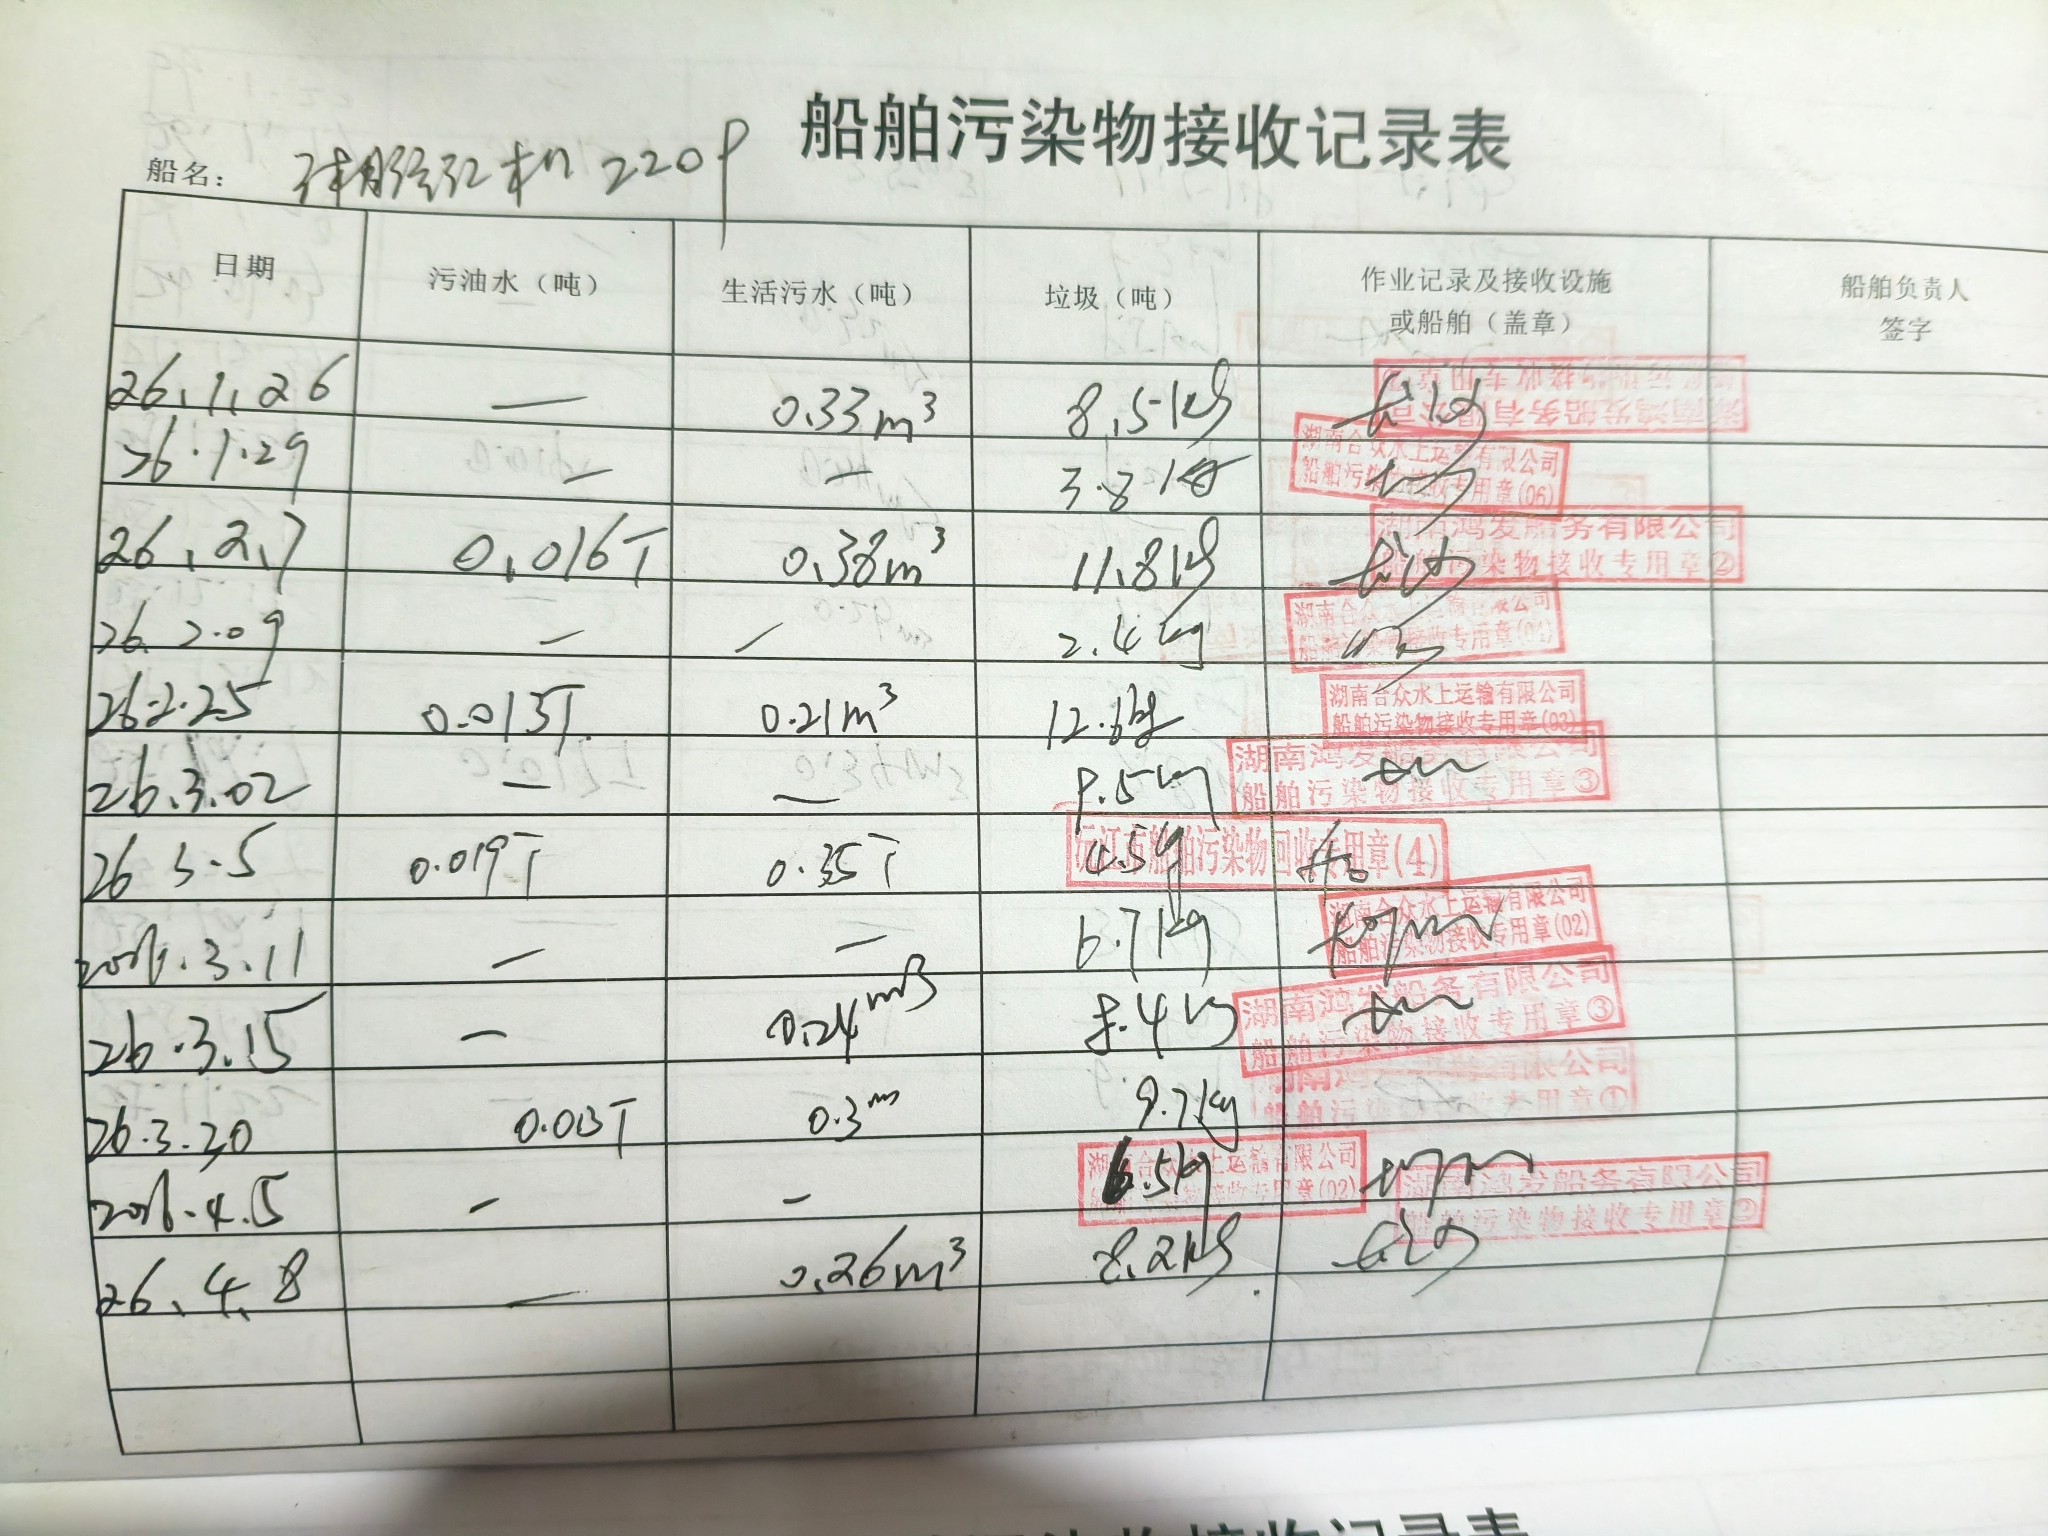 船舶污染物接收记录表
船名： 机2209
日期 污油水（吨） 生活污水（吨） 垃圾（吨） 作业记录及接收设施或船舶（盖章） 船舶负责人签字
26.1.26 — 0.33m³ 8.5kg
湖南鸿发船务有限公司
26.1.29 — — 3.8kg
湖南合众水上运输有限公司
船舶污染物接收专用章(06)
26.2.7 0.016T 0.38m³ 11.8kg
湖南鸿发船务有限公司
船舶污染物接收专用章②
26.2.09 — — 2.4kg
湖南合众水上运输有限公司
船舶污染物接收专用章
26.2.25 0.013T 0.21m³ 12.6kg
湖南合众水上运输有限公司
船舶污染物接收专用章(03)
26.3.02 — — 9.5kg
湖南鸿发船务有限公司
船舶污染物接收专用章③
26 3.5 0.019T 0.35T 4.5kg
沅江市船舶污染物回收专用章(4)
2026.3.11 — — 6.7kg
湖南合众水上运输有限公司
船舶污染物接收专用章(02)
26.3.15 — 0.24m3 8.4kg
湖南鸿发船务有限公司
船舶污染物接收专用章③
26.3.30 0.013T 0.3m 9.7kg
湖南鸿发船务有限公司
船舶污染物接收专用章①
2026.4.5 — — 6.5kg
湖南合众水上运输有限公司
船舶污染物接收专用章(02)
26.4.8 — 0.26m³ 8.2kg
湖南鸿发船务有限公司
船舶污染物接收专用章②
染物接收记录表